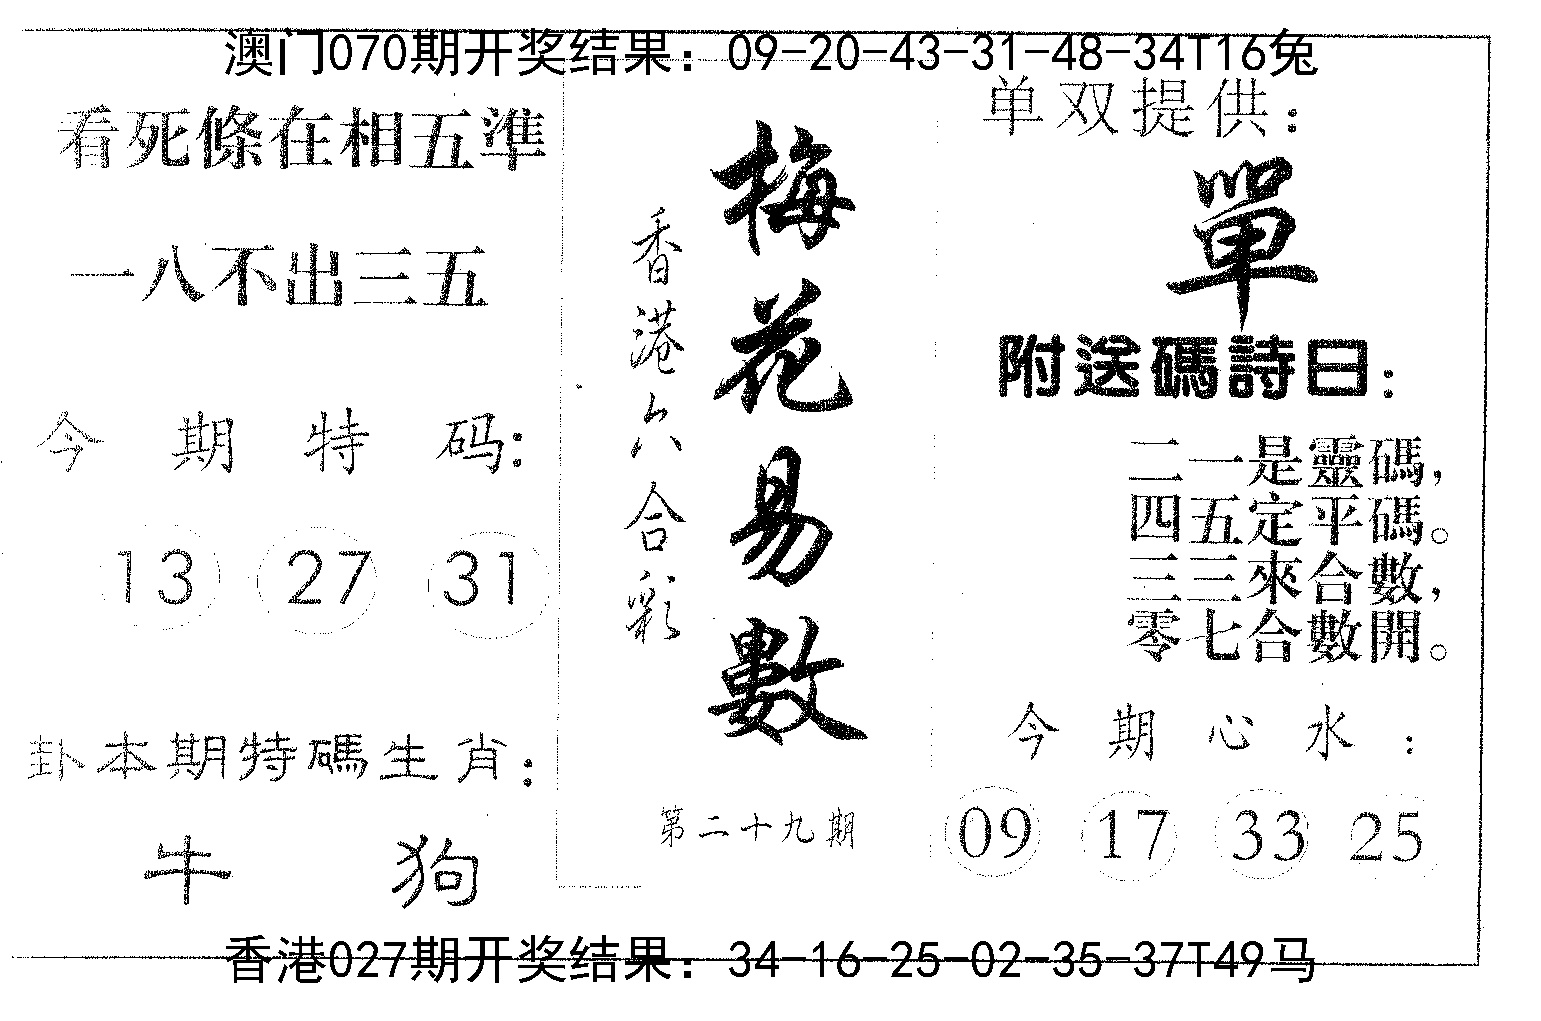 澳门070期开奖结果：09-20-43-31-48-34T16兔
看死條在相五準
一八不出三五
今期特码:
13 27 31
卦本期特碼生肖:
牛 狗
香港六合彩
梅花易數
第二十九期
单双提供:
單
附送碼詩曰:
二一是靈碼,
四五定平碼。
三三來合數,
零七合數開。
今期心水:
09 17 33 25
香港027期开奖结果：34-16-25-02-35-37T49马